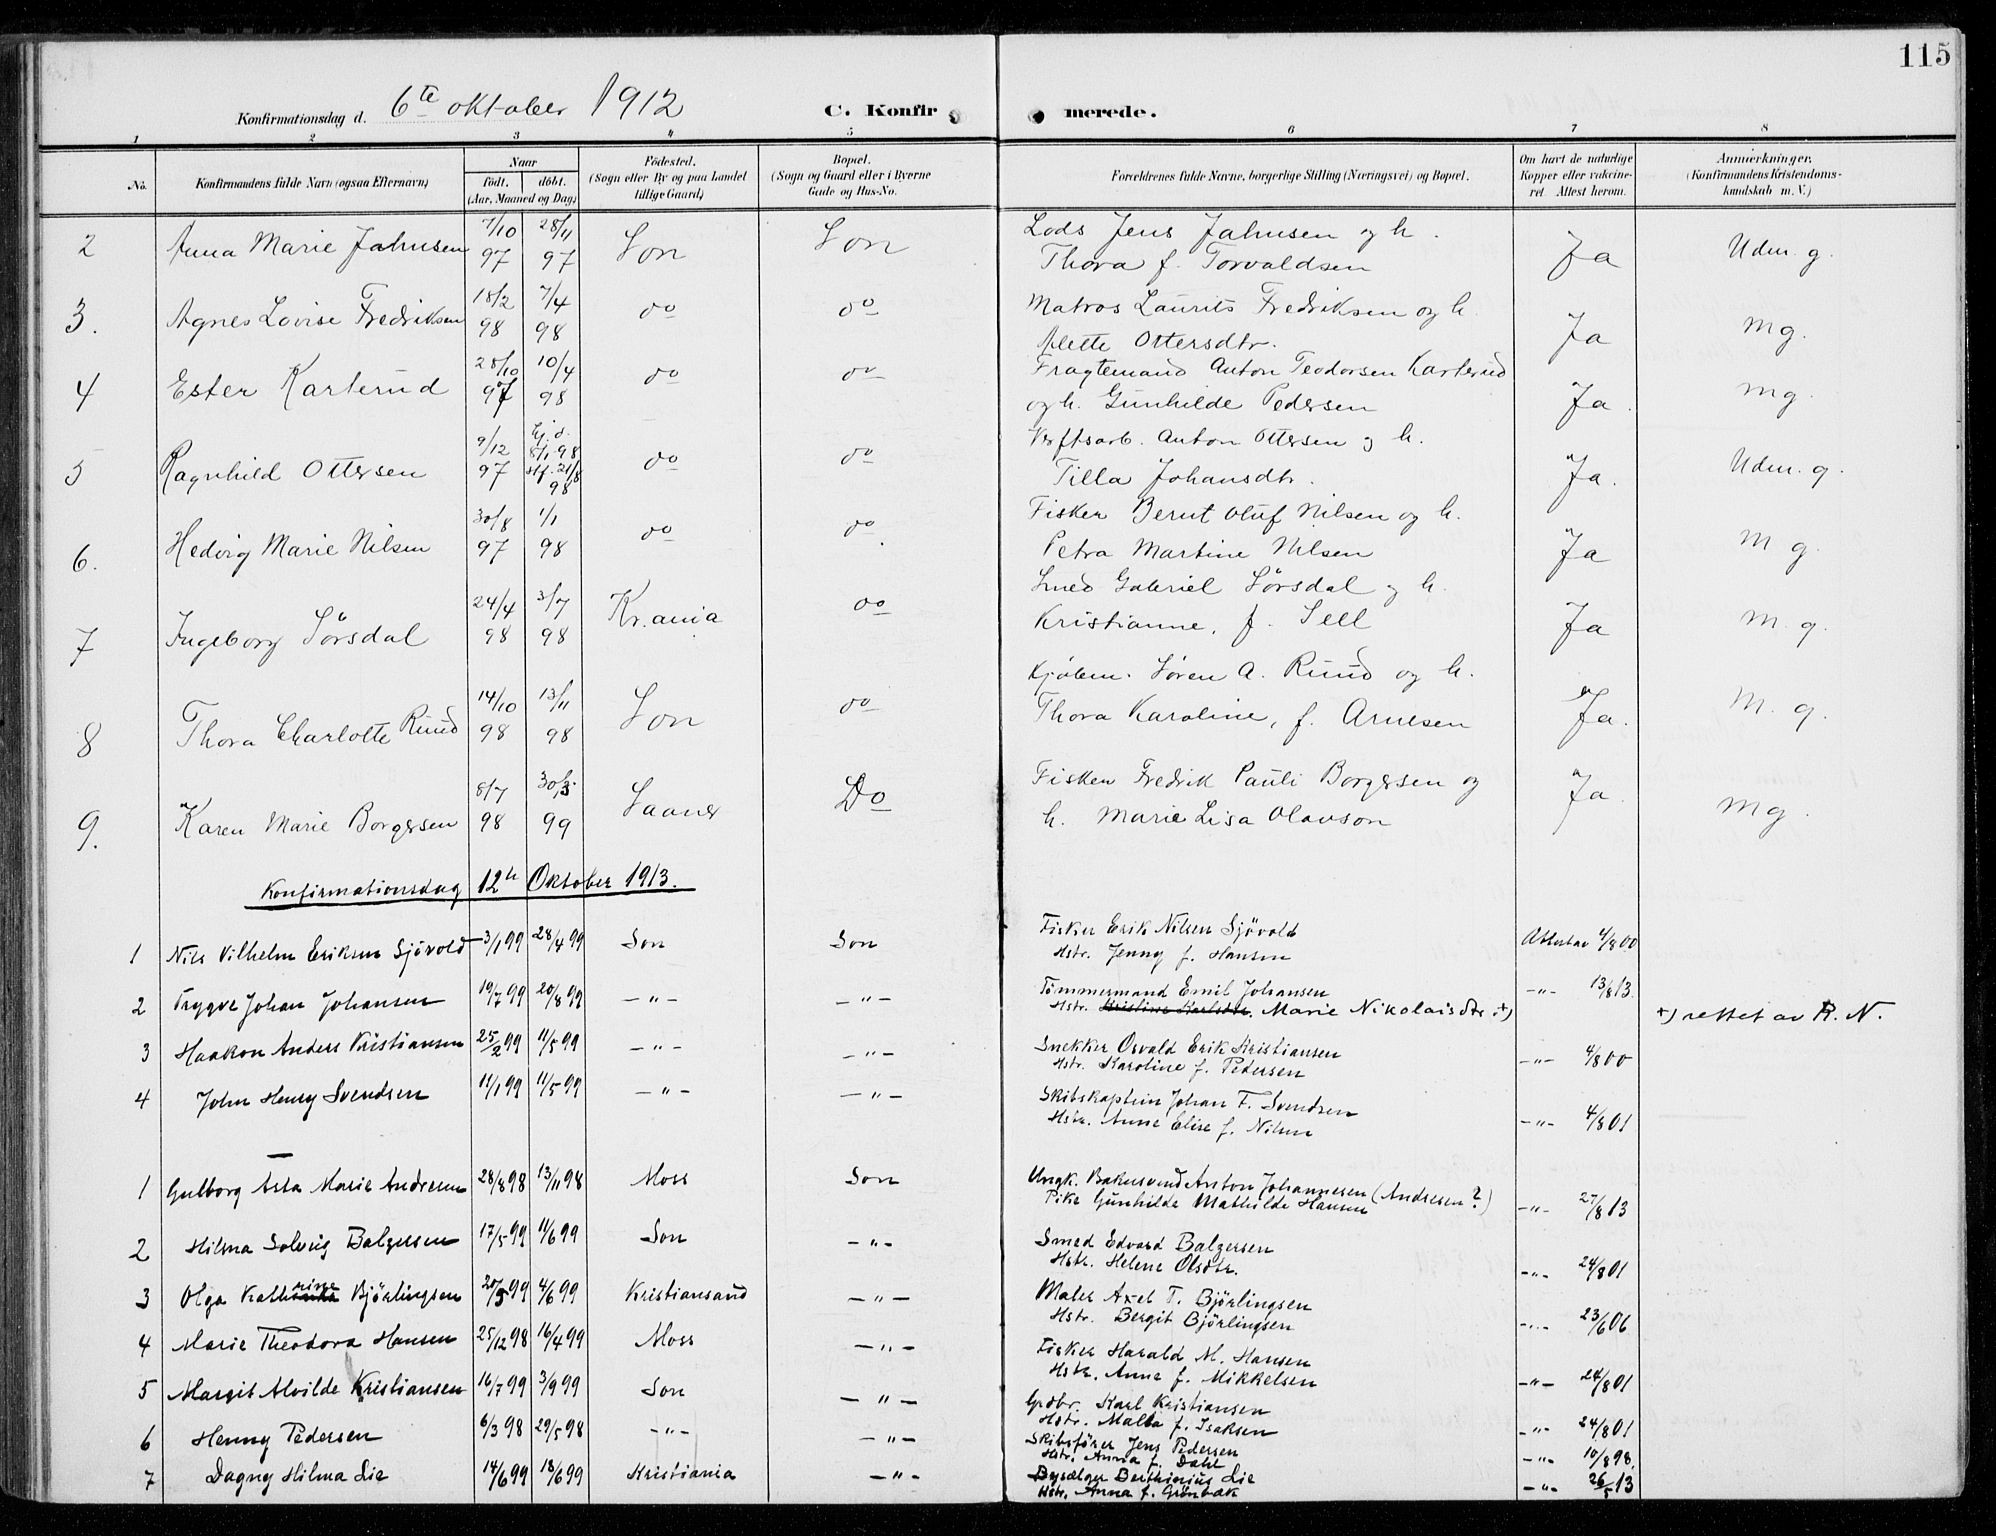 115
Konfirmationsdag d. 6te oktober 1912 C. Konfir merede.
1 2 3 4 5 6 7 8
No. Konfirmandens fulde Navn (ogsaa Efternavn) Naar födt. döbt. (Aar, Maaned og Dag) Födested. (Sogn eller By og paa Landet tillige Gaard) Bopæl. (Sogn og Gaard eller i Byerne Gade og Hus-No. Forældrenes fulde Navne, borgerlige Stilling (Næringsvei) og Bopæl. Om havt de naturlige Kopper eller vaccineret Attest herom. Anmerkninger, (Konfirmandens Kristendomskundskab m. V.)
2 Anna Marie Jahnsen 7/10 97 28/11 97 Son Son Lods Jens Jahnsen og h. Thora f. Torvaldsen Ja Udm. g.
3. Agnes Lovise Fredriksen 18/2 98 7/4 98 do do Matros Laurits Fredriksen og h. Alette Ottersdtr. Ja Mg.
4 Ester Karterud 28/10 97 10/4 98 do do Fragtemand Anton Teodorsen Karterud og h. Gunhilde Pedersen Ja Mg.
5 Ragnhild Ottersen 9/12 97 Hj. d. 8/1 98 stf. 21/8 98 do do Verftsarb. Anton Ottersen og h. Tilla Johansdtr. Ja. Udm. g.
6. Hedvig Marie Nilsen 30/8 97 1/1 98 do do Fisker Bernt Oluf Nilsen og h. Petra Martine Nilsen Ja M g.
7 Ingeborg Sörsdal 24/4 98 3/7 98 Kr.ania do Smed Gabriel Sörsdal og h. Kristianne, f. Sell Ja M. g.
8 Thora Charlotte Ruud 14/10 98 13/11 98 Son do Kjöbm. Sören A. Ruud og h. Thora Karoline, f. Arnesen Ja. M. g.
9. Karen Marie Borgersen 8/7 98 30/3 99 Saaner Do Fisker Fredrik Pauli Borgersen og h. Marie Lisa Olavson Ja Mg.
Konfirmationsdag 12te Oktober 1913.
1 Nils Vilhelm Eriksen Sjövold 3/1 99 28/4 99 Son Son Fisker Erik Nilsen Sjövold Hstr. Jenny f. Hansen Attest av 4/8 00
2 Trygve Johan Johansen 19/7 99 20/8 99 -"- -"- Tömmermand Emil Johansen Hstr. Kristine Karlsdtr. Marie Nikolaisdtr +) -"- 13/8 13. +) rettet av R. N.
3 Haakon Anders Kristiansen 25/2 99 11/5 99 -"- -"- Snekker Osvald Erik Kristiansen Hstr. Karoline f. Pedersen -"- 4/8 00
4 John Henry Svendsen 11/1 99 11/5 99 -"- -"- Skibskaptein Johan F. Svendsen Hstr. Anne Elise f. Nilsen -"- 4/8 01
1 Gulborg Asta Marie Andresen 28/8 98 13/11 98 Moss Son Ungk. Bakersvend Anton Johannesen (Andresen?) Pike Gunhilde Mathilde Hansen -"- 27/8 13
2 Hilma Solveig Balgersen 17/5 99 11/6 99 Son -"- Smed Edvard Balgersen Hstr. Helene Olsdtr. -"- 24/8 01
3 Olga Kathrine Björlingsen 20/5 99 4/6 99 Kristiansand -"- Maler Axel T. Björlingsen Hstr. Bergit Björlingsen -"- 23/6 06
4 Marie Theodora Hansen 25/12 98 16/4 99 Moss -"- Fisker Harald M. Hansen Hstr. Anna f. Mikkelsen -"- 24/8 01
5 Margit Alvilde Kristiansen 16/7 99 3/9 99 Son -"- Grdbr. Karl Kristiansen Hstr. Malla f. Isaksen -"- 24/8 01
6 Henny Pedersen 6/3 98 29/5 98 -"- -"- Skibsförer Jens Pedersen Hstr. Anna f. Dahl -"- 10/8 98.
7 Dagny Hilma Lie 14/6 99 18/6 99 Kristiania -"- Bysælger Berthinius Lie Hstr. Anna f. Grönbæk -"- 26/5 13